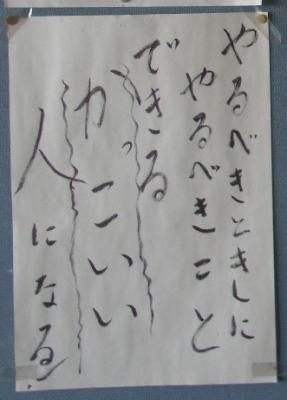 やるべきときに
やるべきこと
できる
かっこいい
人になる!